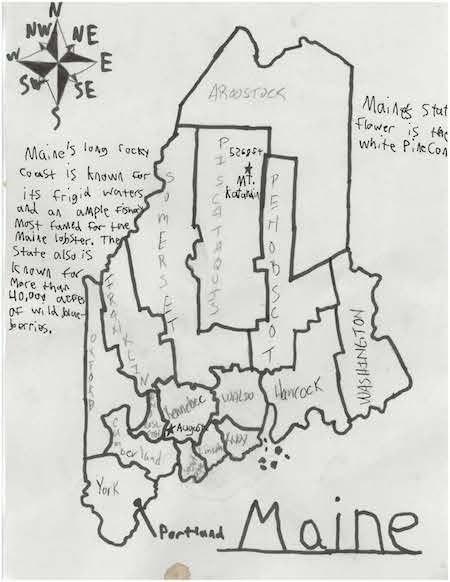 N
NW NE
W E
SW SE
S
Maine's long rocky
coast is known for
its frigid waters
and an ample fishing
Most famed for the
Maine lobster. The
State also is
known for
More than
40,000 acres
of wild blue-
berries.
Maine's Stat
flower is the
white PineCon
AROOSTOCK
5268ft
MT.
Katahdin
SOMERSET
PISCATAQUIS
PENOBSCOT
FRANKLIN
OXFORD
WASHINGTON
Kennebec
Augusta
WALDO
HANCOCK
Knox
Lincoln
Cumberland
York
Portland
Maine